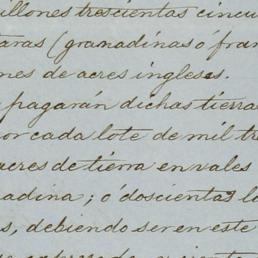 illones trescientas cincu
taras (granadinas ó fran
nes de acres ingleses.
pagarán dichas tierras
or cada lote de mil tre
acres de tierra en vales
nadina; ó doscientas l
s, debiendo ser en este